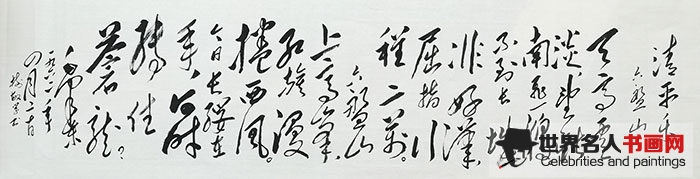 清平乐
六盘山
天高云
淡，望断
南飞雁
不到长
城
非好汉
屈指行
程二万。
六盘山
上高峰，
红旗漫
卷西风。
今日长缨在
手，何时
缚住
苍龙？
毛泽东
一九六一年
四月二十日
世界名人书画网
Celebrities and paintings